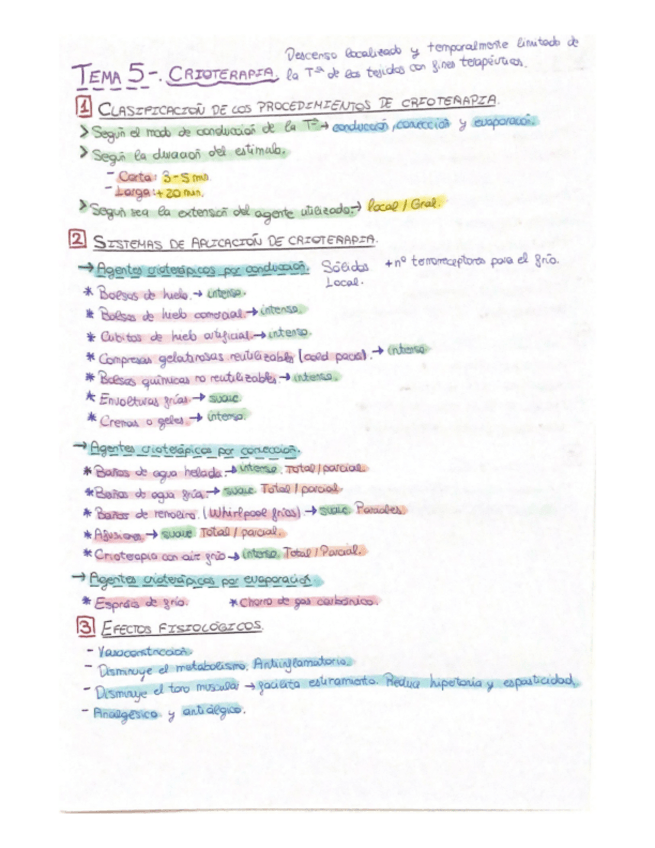 Descenso localizado y temporalmente limitado de
TEMA 5-. CRIOTERAPIA. la Tª de los tejidos con fines terapéuticos.
1 CLASIFICACIÓN DE LOS PROCEDIMIENTOS DE CRIOTERAPIA.
> Según el modo de conducción de la Tª → conducción, convección y evaporación.
> Según la duración del estímulo.
- Corta: 3-5 min.
- Larga: +20 min.
> Según sea la extensión del agente utilizado. → local / Gral.
2 SISTEMAS DE APLICACIÓN DE CRIOTERAPIA.
→ Agentes crioterápicos por conducción. Sólidos +nº termorreceptores para el frío.
Local.
* Bolsas de hielo. → intenso.
* Bolsas de hielo comercial → intenso.
* Cubitos de hielo artificial → intenso.
* Compresas gelatinosas reutilizables (cold packs). → intenso
* Bolsas químicas no reutilizables → intenso.
* Envolturas frías → suave
* Cremas o geles. → intenso.
→ Agentes crioterápicos por convección.
* Baños de agua helada. → intenso. Total / parcial.
* Baños de agua fría. → suave Total / parcial.
* Baños de remolino. (Whirlpool fríos) → suave Parciales.
* Afusiones → suave Total / parcial.
* Crioterapia con aire frío → intenso. Total / Parcial.
→ Agentes crioterápicos por evaporación
* Esprais de frío. * Chorro de gas carbónico.
3 EFECTOS FISIOLÓGICOS.
- Vasoconstricción.
- Disminuye el metabolismo. Antiinflamatorio.
- Disminuye el tono muscular → facilita estiramiento. Reduce hipertonía y espasticidad.
- Analgésico y antiálgico.